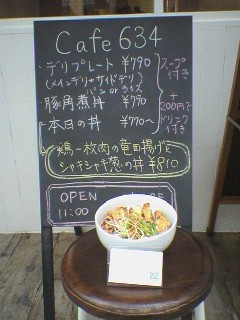 Cafe 634
・デリプレート ¥790
(メインデリ+サイドデリ
パン or ライス
・豚角煮丼 ¥790
・本日の丼 ¥770〜
スープ付き
+
200円でドリンク付き
鶏一枚肉の竜田揚げと
シャキシャキ葱の丼 ¥810
OPEN
11:00